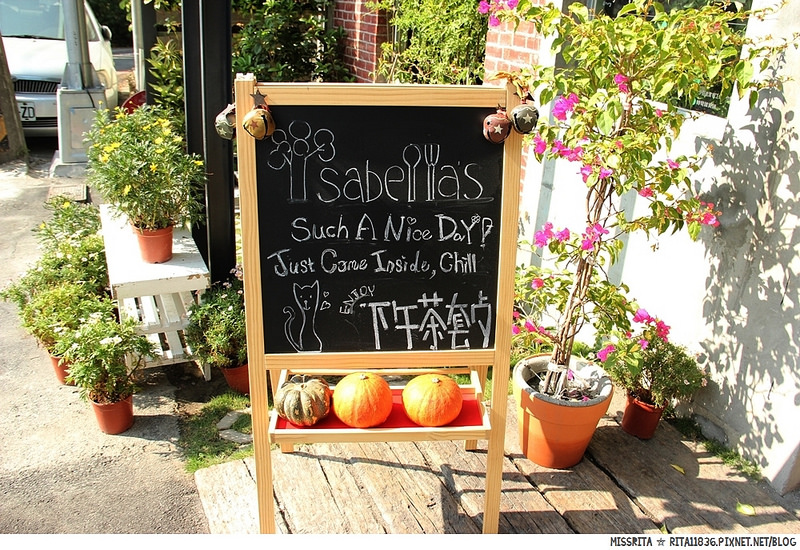 Isabella's
Such A Nice Day!
Just Come Inside, Chill
ENJOY
下午茶套点
ZD
MISSRITA ☆ RITA11836.PIXNET.NET/BLOG